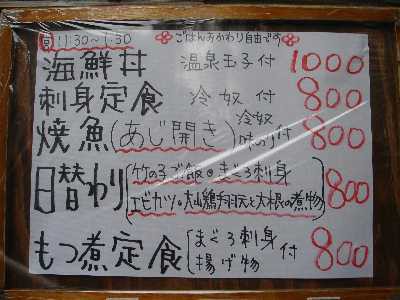 旬 11:30～1:30 ごはんおかわり自由です
海鮮丼 温泉玉子付 1000
刺身定食 冷奴付 800
焼魚(あじ開き) 冷奴 味のり付 800
日替わり 竹の子ご飯・まぐろ刺身 800
エビカツ・大山鶏手羽元と大根の煮物
もつ煮定食 まぐろ刺身 付 800
揚げ物